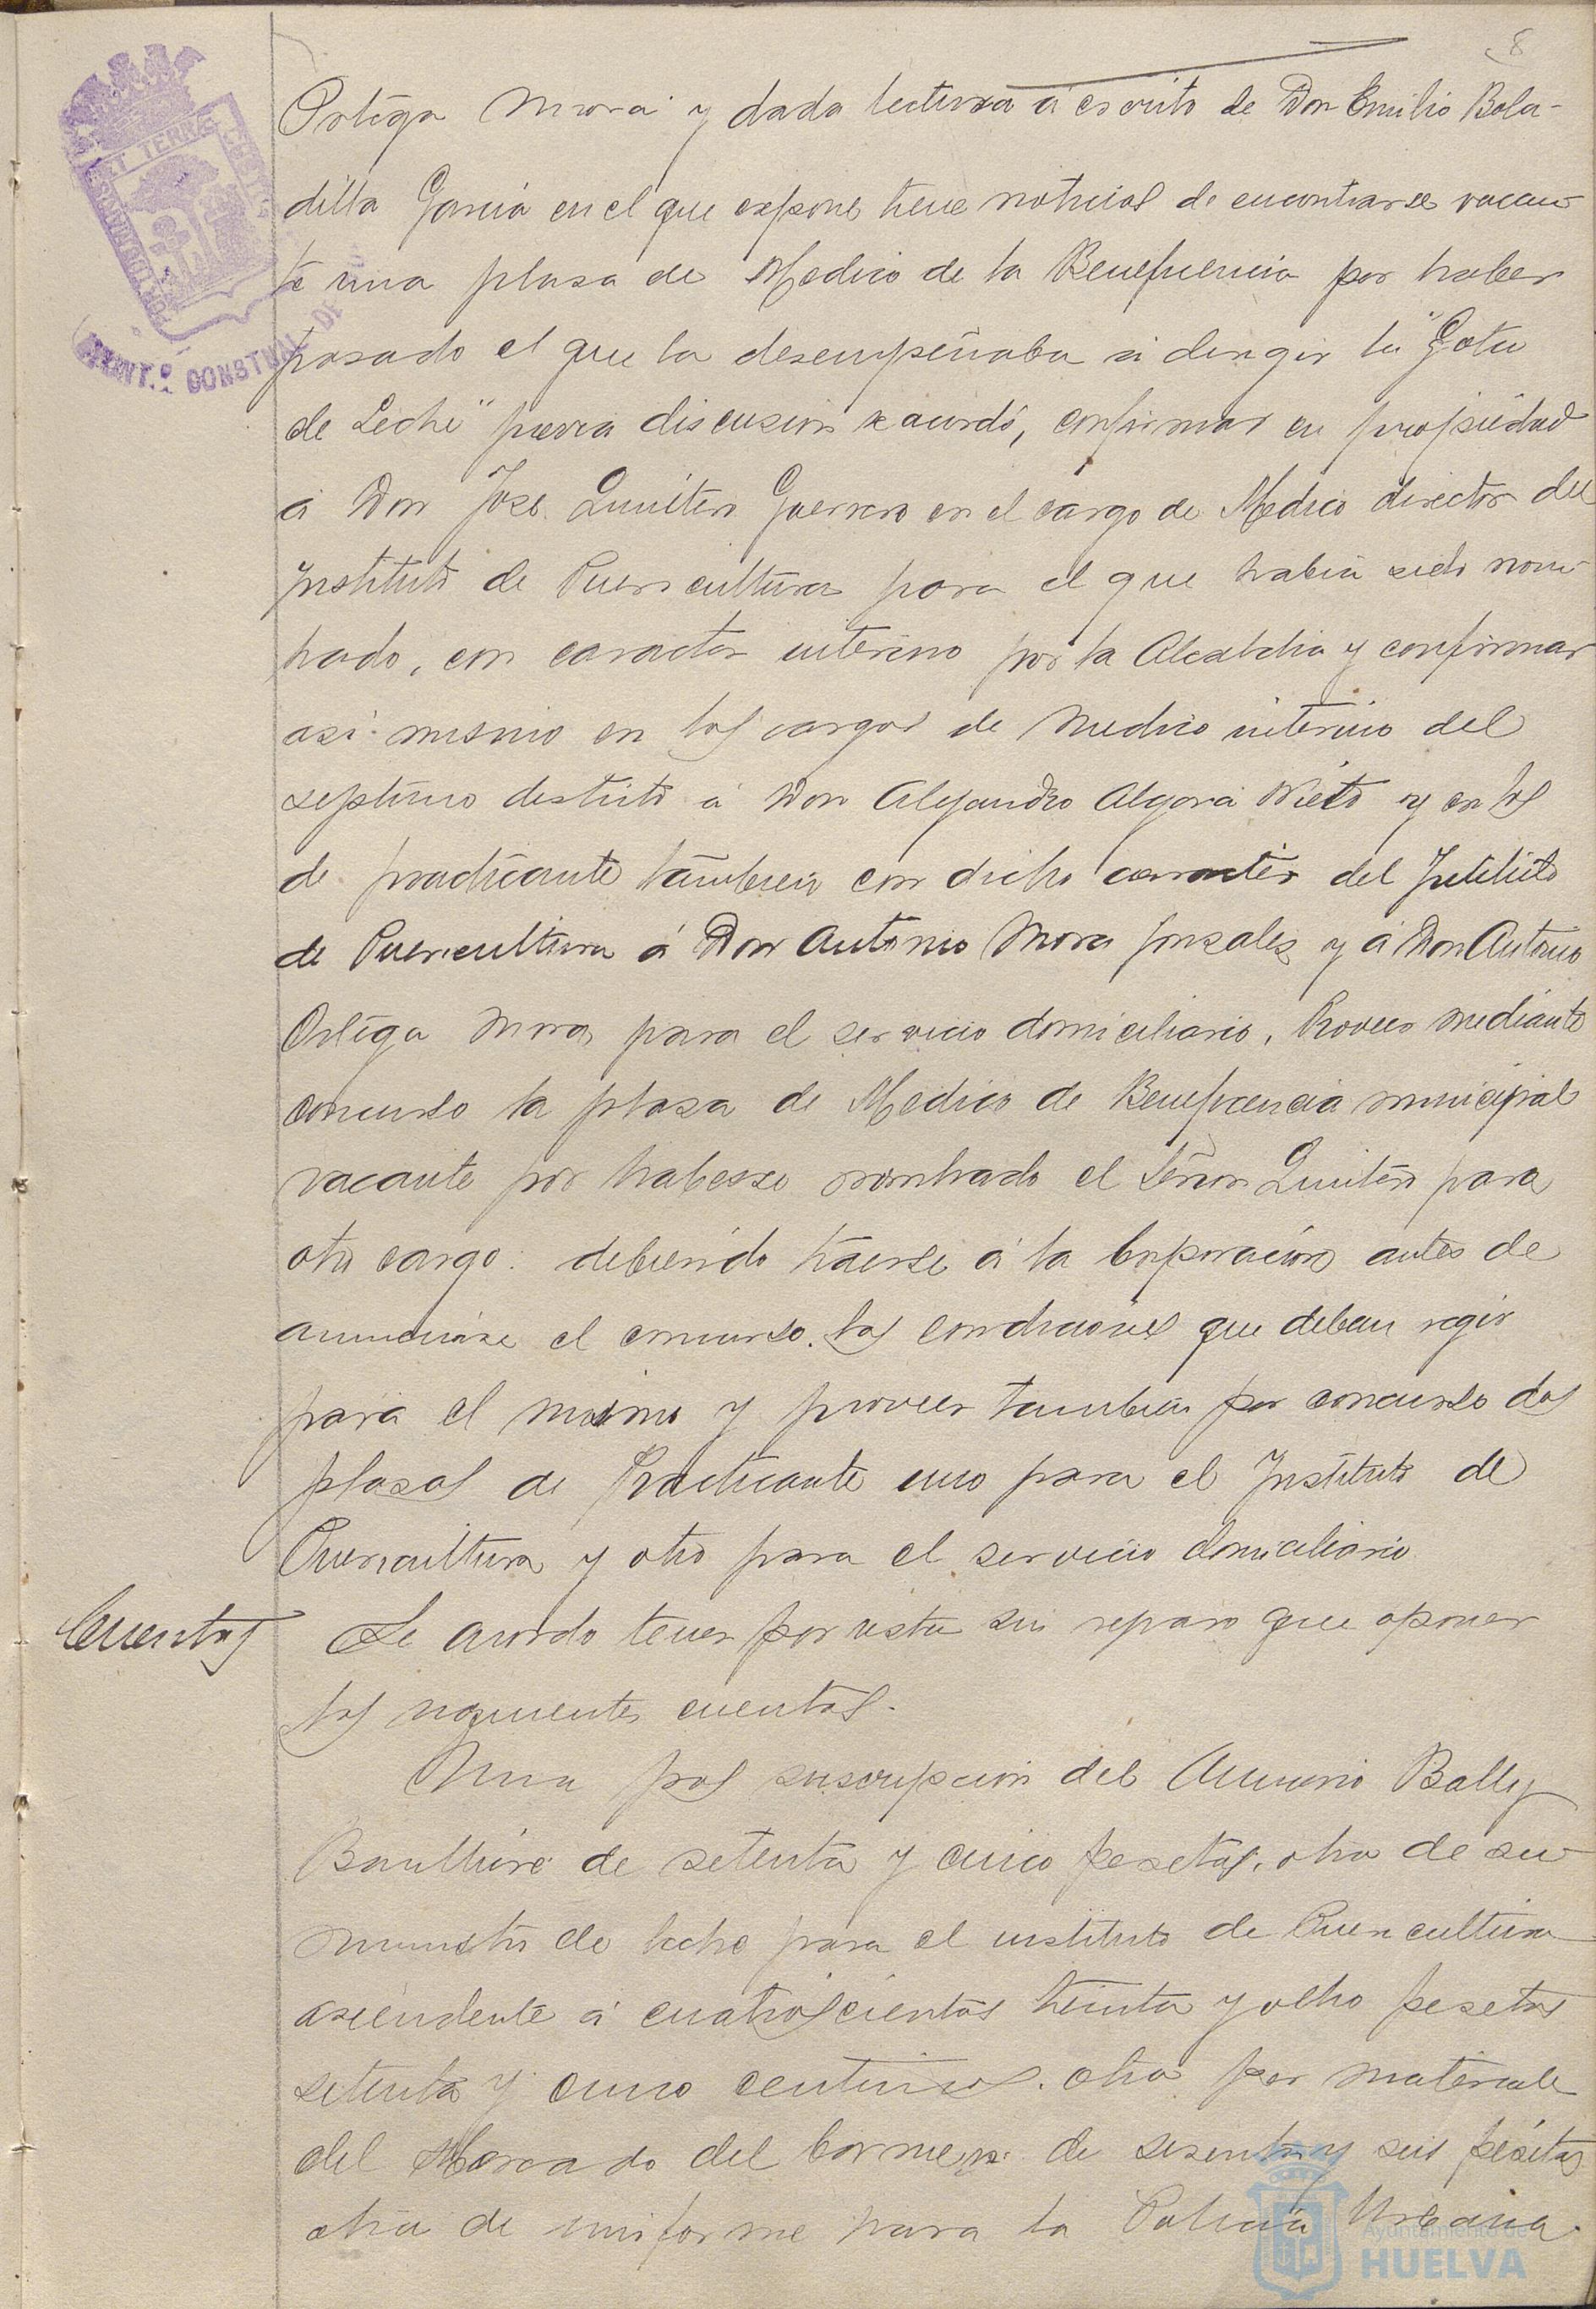 8
Ortega Mora y dada lectura á escrito de Don Emilio Boba-
dilla García en el que expone tiene noticias de encontrarse vacan-
te una plasa de Medico de la Beneficencia por haber
pasado el que la desempeñaba á dirigir la "Gota
de Leche" previa discusion se acordó, confirmar en propiedad
á Don Jose Quintero Guerrero en el cargo de Medico director del
Instituto de Puericultura para el que habia sido nom-
brado, con caracter interino por la Alcaldia y confirmar
asi mismo en los cargos de Medico interino del
septimo distrito á Don Alejandro Algora Nieto y en los
de practicante tambien con dicho caracter del Intituto
de Puericultura á Don Antonio Mora Gonsales y á Don Antonio
Ortega Mora para el servicio domiciliario. Proveer mediante
concurso la plasa de Medico de Beneficencia municipal
vacante por haberse nombrado el Señor Quintero para
otro cargo: debiendo traerse á la Corporacion antes de
anunciarse el concurso. las condiciones que deban regir
para el mismo y proveer tambien por concurso dos
plasas de Practicante uno para el Instituto de
Puericultura y otro para el servicio domiciliario
Cuentas
Se acordo tener por vista sin reparo que oponer
las siguientes cuentas.
Una por suscripcion del Anuario Bally
Baulliere de setenta y cinco pesetas. otra de su-
ministro de leche para el instituto de Puericultura
ascendente á cuatroscientas treinta y ocho pesetas
setenta y cinco centimos. otra por materiale
del Mercado del Carmen de sesenta y seis pesetas
otra de uniforme para la Policia Urbana.
AYUNT.º CONSTNAL DE
PORTUS MARIS ET TERRAE CUSTODIA
Ayuntamiento de
HUELVA